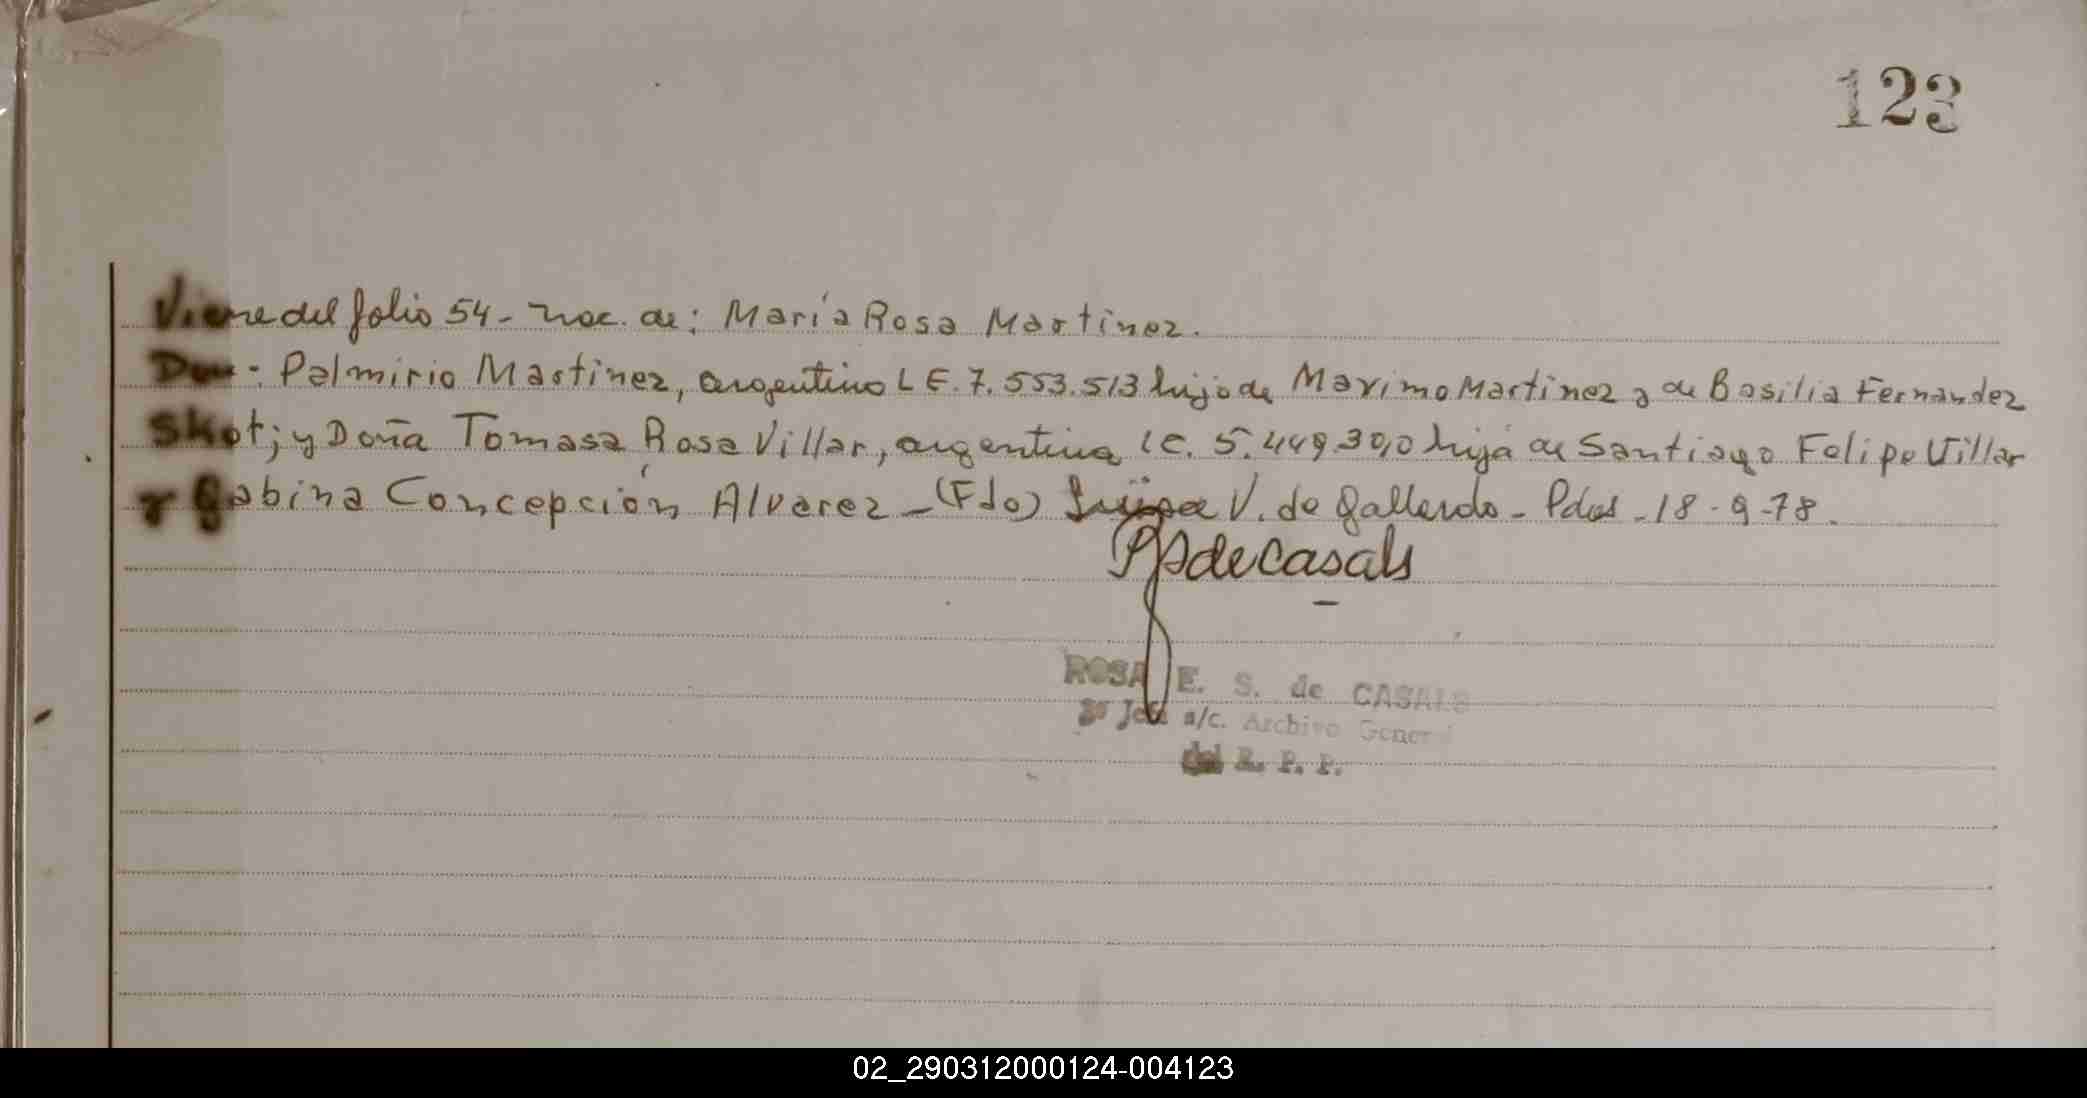 123
Viene del folio 54- nac. de: María Rosa Martinez.
Don: Palmirio Martinez, argentino L E. 7.553.513 hijo de Maximo Martinez y de Basilia Fernandez
Skot; y Doña Tomasa Rosa Villar, argentina LC. 5.449.300 hija de Santiago Felipe Villar
y Gabina Concepción Alvarez - (Fdo) V. de Gallardo - Pdas - 18-9-78.
de Casals
ROSA E. S. de CASALS
Jefe a/c. Archivo General
del R. P. P.
02_290312000124-004123